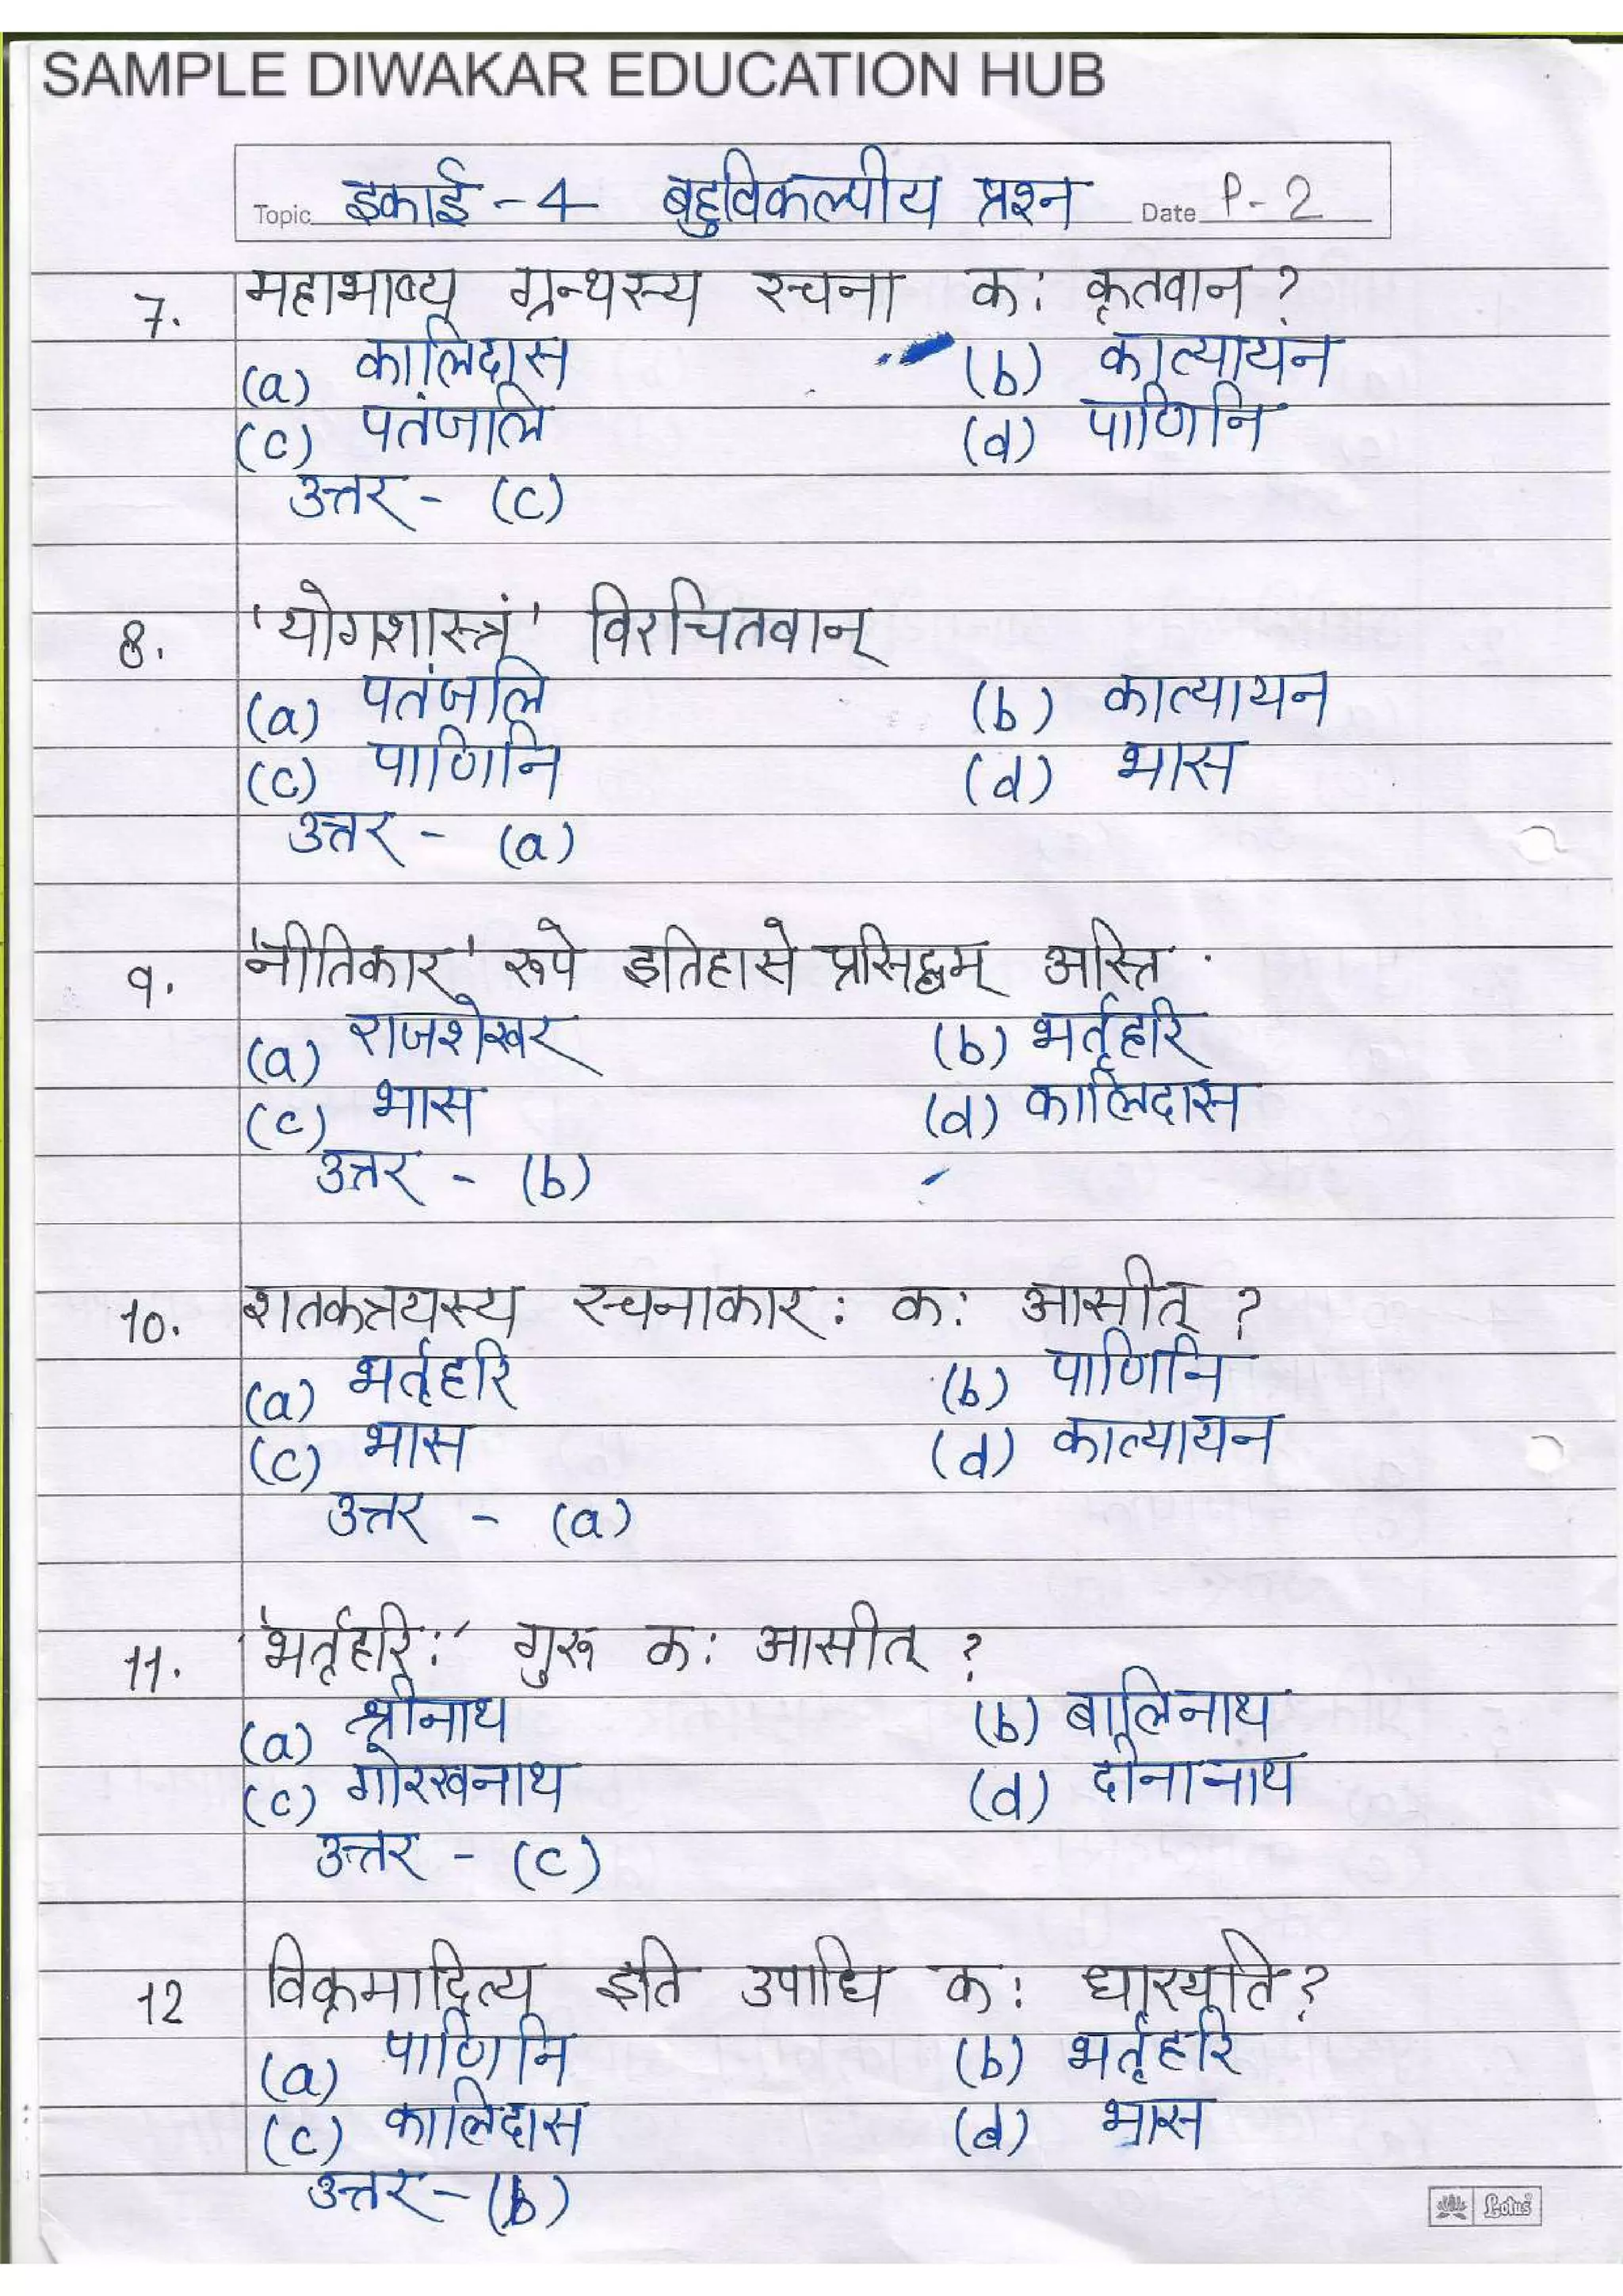 SAMPLE DIWAKAR EDUCATION HUB
Topic इकाई - 4 बहुविकल्पीय प्रश्न Date P-2
7. महाभाष्य ग्रन्थस्य रचना कः कृतवान ?
(a) कालिदास (b) कात्यायन
(c) पतंजलि (d) पाणिनि
उत्तर - (c)
8. 'योगशास्त्रं' विरचितवान्
(a) पतंजलि (b) कात्यायन
(c) पाणिनि (d) भास
उत्तर - (a)
9. 'नीतिकार' रूपे इतिहासे प्रसिद्धम् अस्ति .
(a) राजशेखर (b) भर्तृहरि
(c) भास (d) कालिदास
उत्तर - (b)
10. शतकत्रयस्य रचनाकार: क: आसीत् ?
(a) भर्तृहरि (b) पाणिनि
(c) भास (d) कात्यायन
उत्तर - (a)
11. 'भर्तृहरि:' गुरू क: आसीत् ?
(a) श्रीनाथ (b) बालिनाथ
(c) गोरखनाथ (d) दीनानाथ
उत्तर - (c)
12 विक्रमादित्य इति उपाधि क: धारयति ?
(a) पाणिनि (b) भर्तृहरि
(c) कालिदास (d) भास
उत्तर - (b)
Lotus